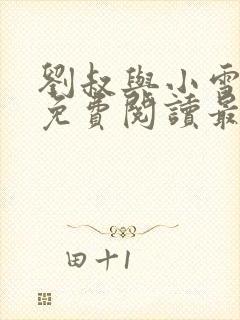 劉叔與小雪
免費閱讀最
田十1